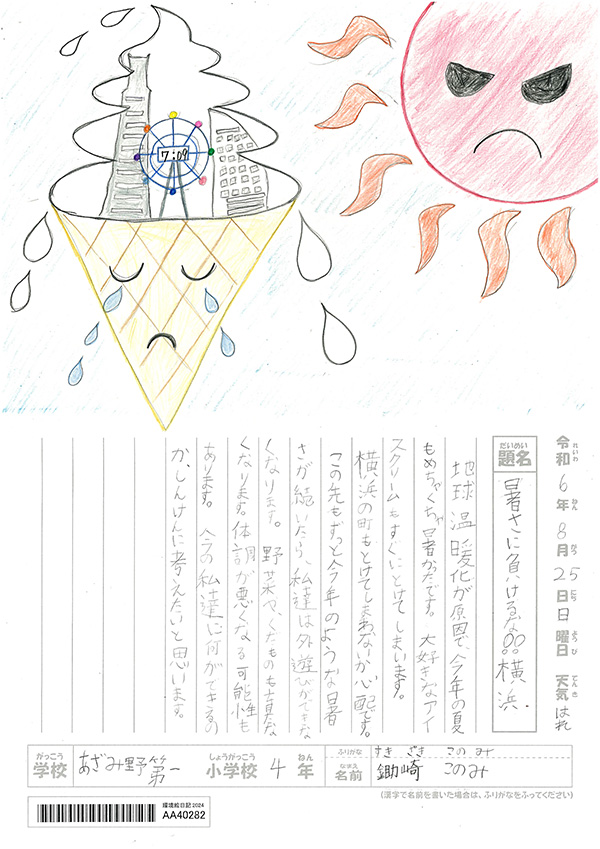 7:09
令和6年8月25日日曜日 天気 はれ
れいわ ねん がつ にち ようび てんき
だいめい
題名
暑さに負けるな!!横浜。
地球温暖化が原因で、今年の夏
もめちゃくちゃ暑かったです。大好きなアイ
スクリームもすぐにとけてしまいます。
横浜の町もとけてしまわないか心配です。
この先もずっと今年のような暑
さが続いたら、私達は外遊びができな
くなります。野菜や、くだものも育たな
くなります。体調が悪くなる可能性も
あります。今の私達に何ができるの
か、しんけんに考えたいと思います。
がっこう
学校
あざみ野第一
しょうがっこう
小学校
4
ねん
年
ふりがな
すきざき このみ
なまえ
名前
鋤崎 このみ
(漢字で名前を書いた場合は、ふりがなをふってください)
環境絵日記2024
AA40282